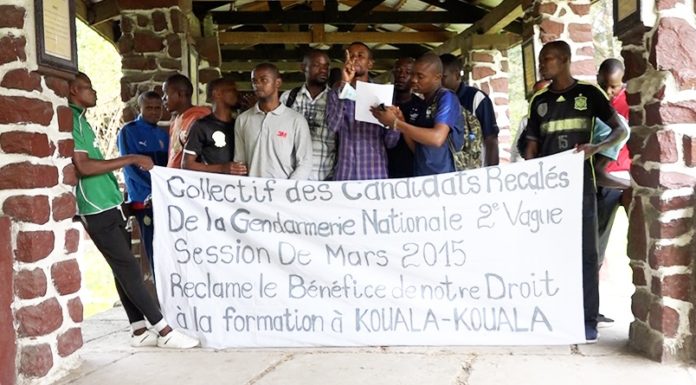 Collectif des Candidats Recalés
De la Gendarmerie Nationale 2e Vague
Session De Mars 2015
Reclame le Bénéfice de notre Droit
à la formation à KOUALA-KOUALA
3M
15